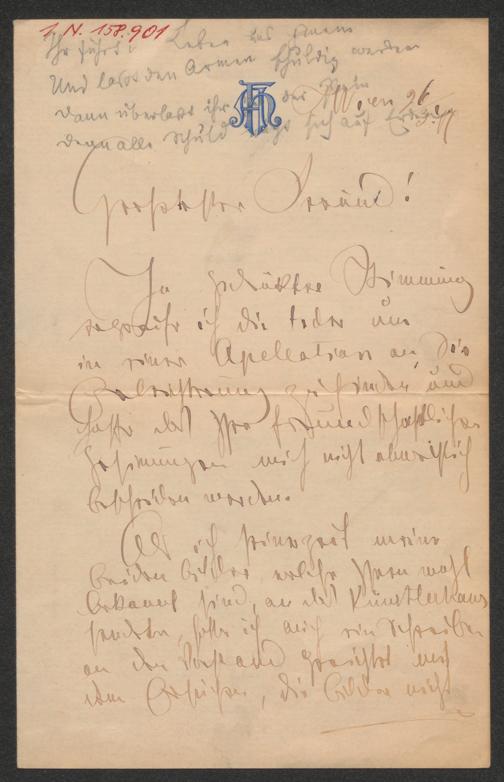 I. N. 158.901
Ihr führt Leben uns hinein
Und lasst den Armen schuldig werden
Dann überlasst ihr der Pein
denn alle Schuld sich auf Erden
Wien 26
Geehrtester Freund!
In gedrückter Stimmung
ergreife ich die Feder um
in einer Apellation an Sie
zu finden, und
hoffe daß Ihre freundschaftlichen
Gesinnungen mich nicht abweislich
bescheiden werden.
Als ich seinerzeit meine
beiden Bilder, welche Ihnen wohl
bekannt sind, an das Künstlerhaus
sendete, hatte ich auch ein Schreiben
an den Vorstand gerichtet mit
dem Ersuchen, die Bilder nicht